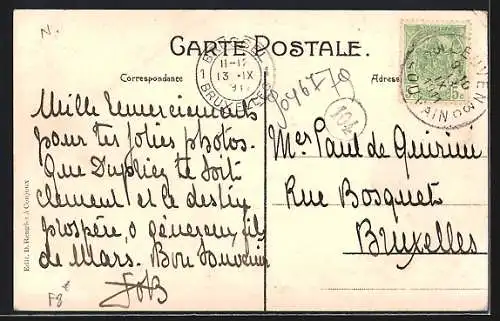 N.
CARTE POSTALE.
Correspondance
Adres
BRUXELLES
1
11-12
13 IX
BRUXELLES
LEUVEN
LOUVAIN
104
Mille remerciements
pour tes jolies photos.
Que Dupliez te soit
clément et le destin
prospère, o généreux fils
de Mars. Bon Souvenir
Mr Paul de Quirini
Rue Bosquet
Bruxelles
Edit. D. à Conjoux
F8